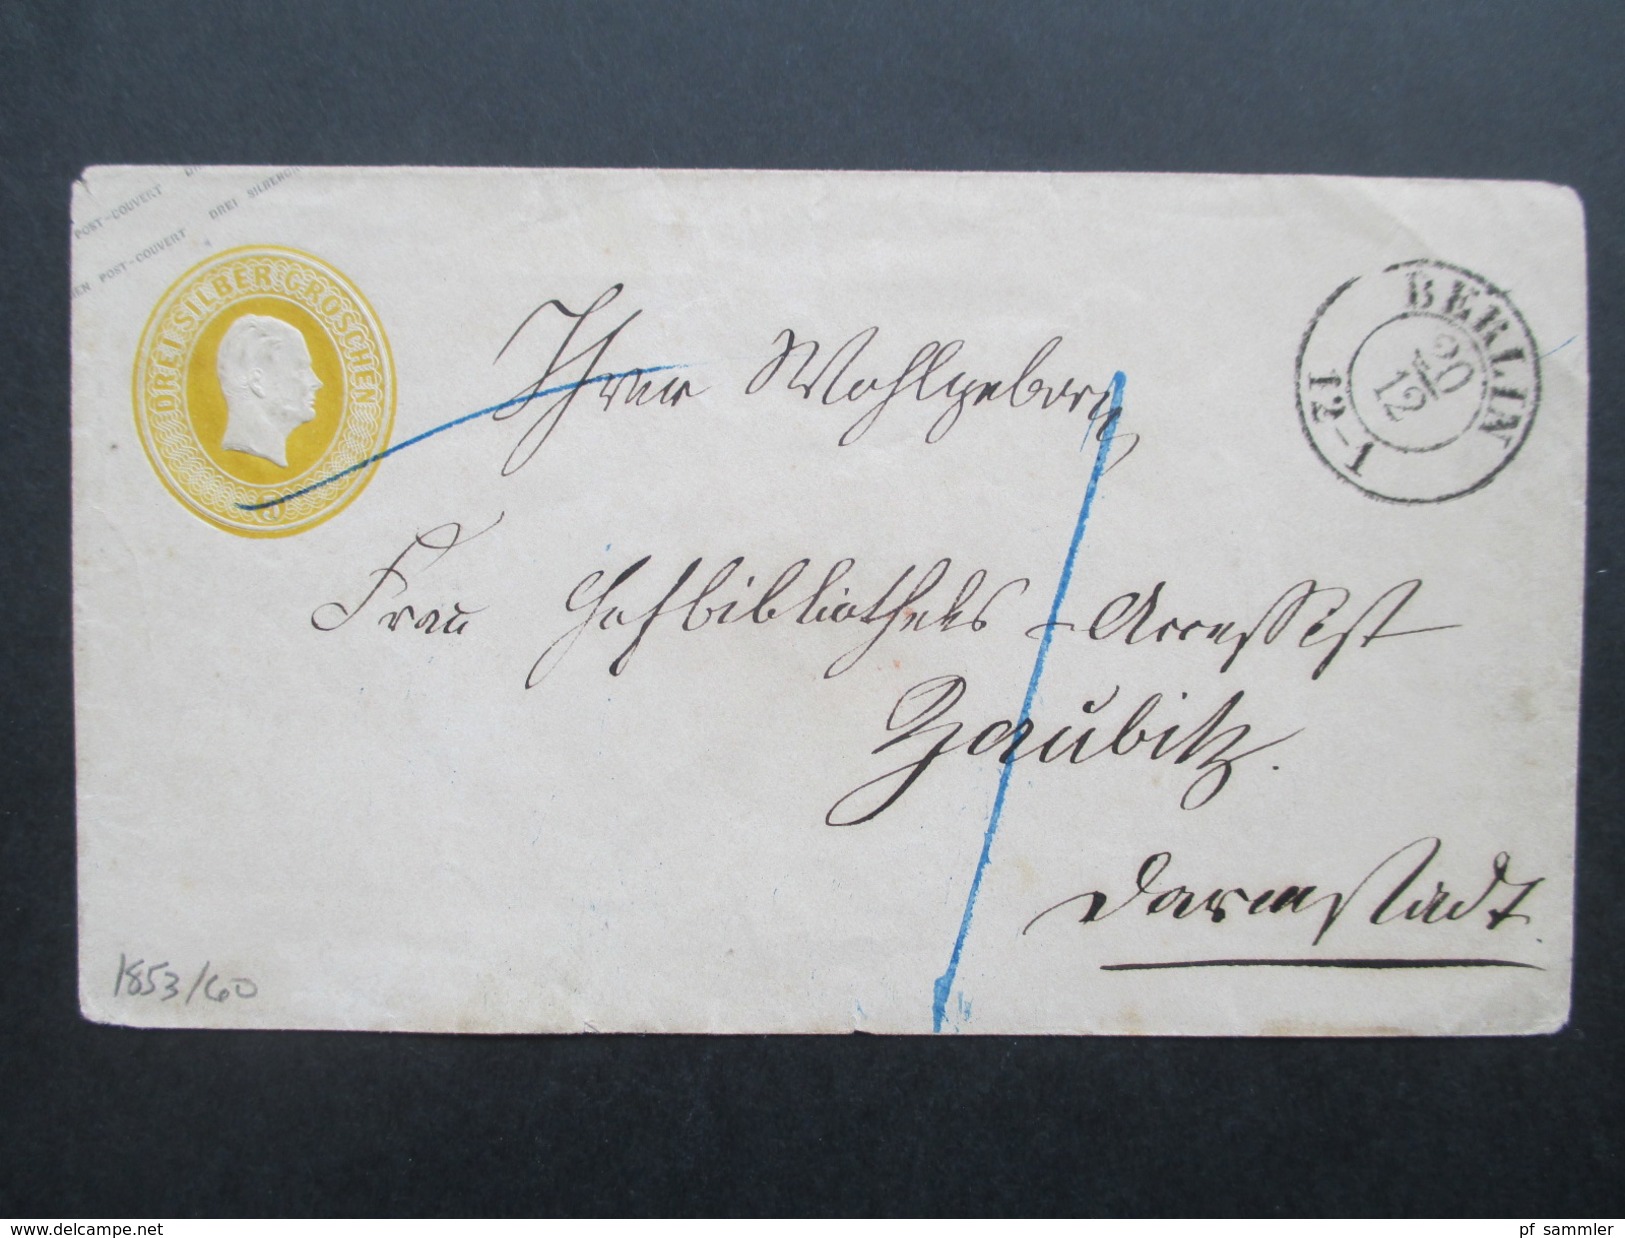 POST-COUVERT DR
EN POST-COUVERT DREI SILBERGR
DREI SILBER GROSCHEN
3
BERLIN
20
12
12-1
Ihrer Wohlgeborn
Frau Hofbibliotheks-Accessist
Zaubitz.
Darmstadt.
1853/60
www.delcampe.net
pf_sammler